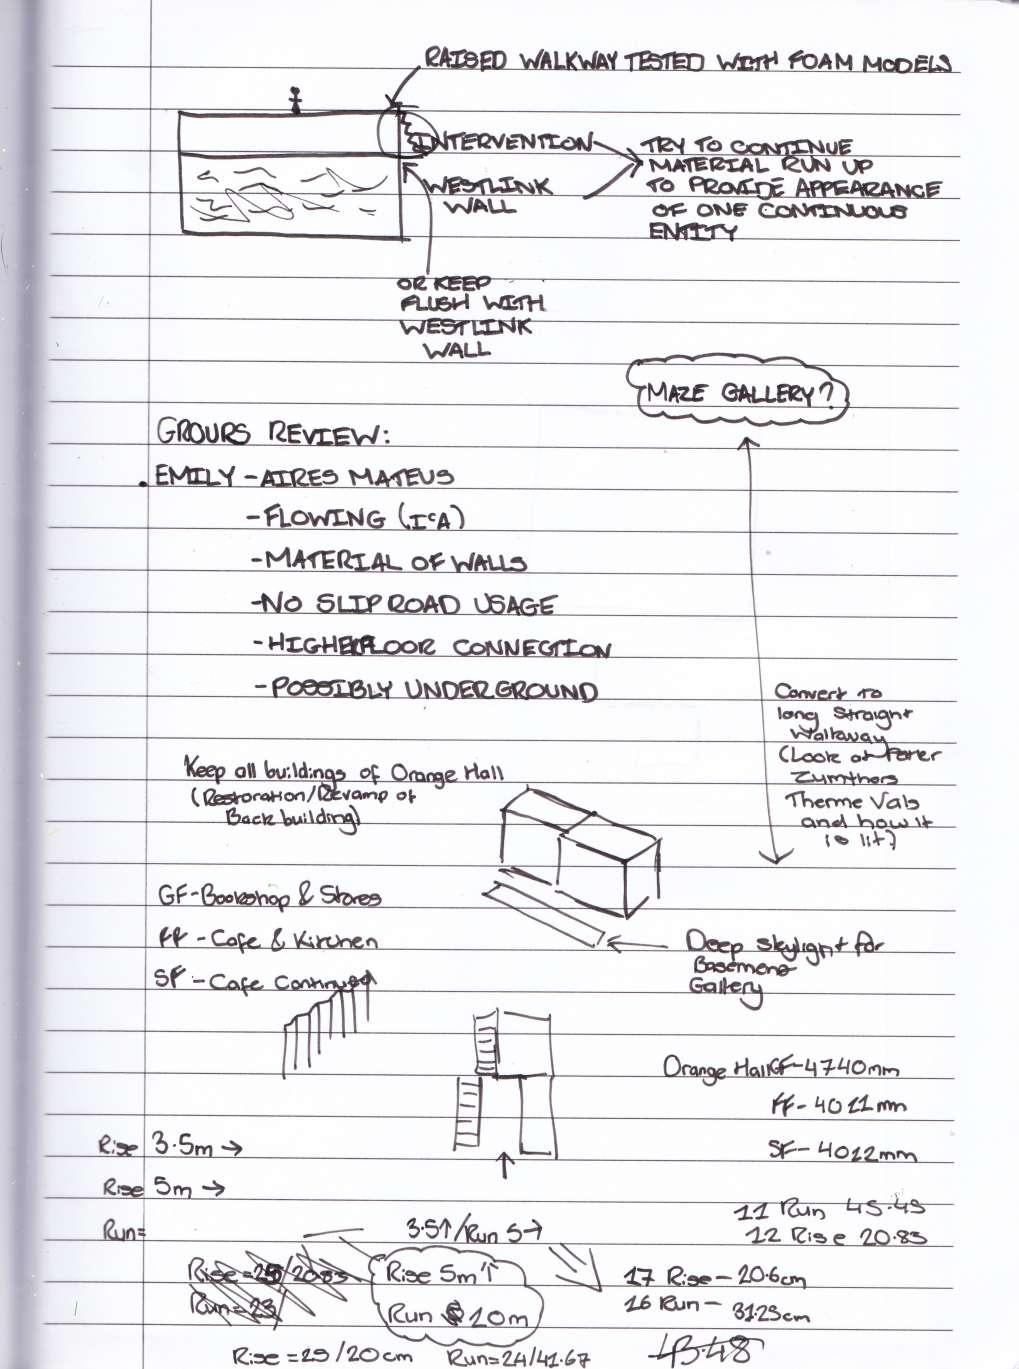 RAISED WALKWAY TESTED WITH FOAM MODELS
INTERVENTION
TRY TO CONTINUE
MATERIAL RUN UP
TO PROVIDE APPEARANCE
OF ONE CONTINUOUS
ENTITY
WESTLINK
WALL
OR KEEP
FLUSH WITH
WESTLINK
WALL
MAZE GALLERY?
GROUPS REVIEW:
. EMILY - AIRES MATEUS
- FLOWING (ICA)
- MATERIAL OF WALLS
- NO SLIP ROAD USAGE
- HIGHER FLOOR CONNECTION
- POSSIBLY UNDERGROUND
Convert to
long straight
Walkway
(Look at Peter
Zumthors
Therme Vals
and how it
is lit?)
Keep all buildings of Orange Hall
(Restoration/Revamp of
Back building)
GF-Bookshop & Stores
FF - Cafe & Kitchen
SF - Cafe Continued
Deep skylight for
Basement
Gallery
Orange Hall GF-4740mm
FF- 4011mm
SF- 4012mm
Rise 3.5m →
Rise 5m →
Run=
3.5↑/Run 5→
11 Run 45.45
12 Rise 20.83
Rise=25/20.83
Run=23/
Rise 5m↑
Run 10m
17 Rise - 20.6cm
16 Run - 31.25cm
Rise = 25/20cm Run=24/41.67